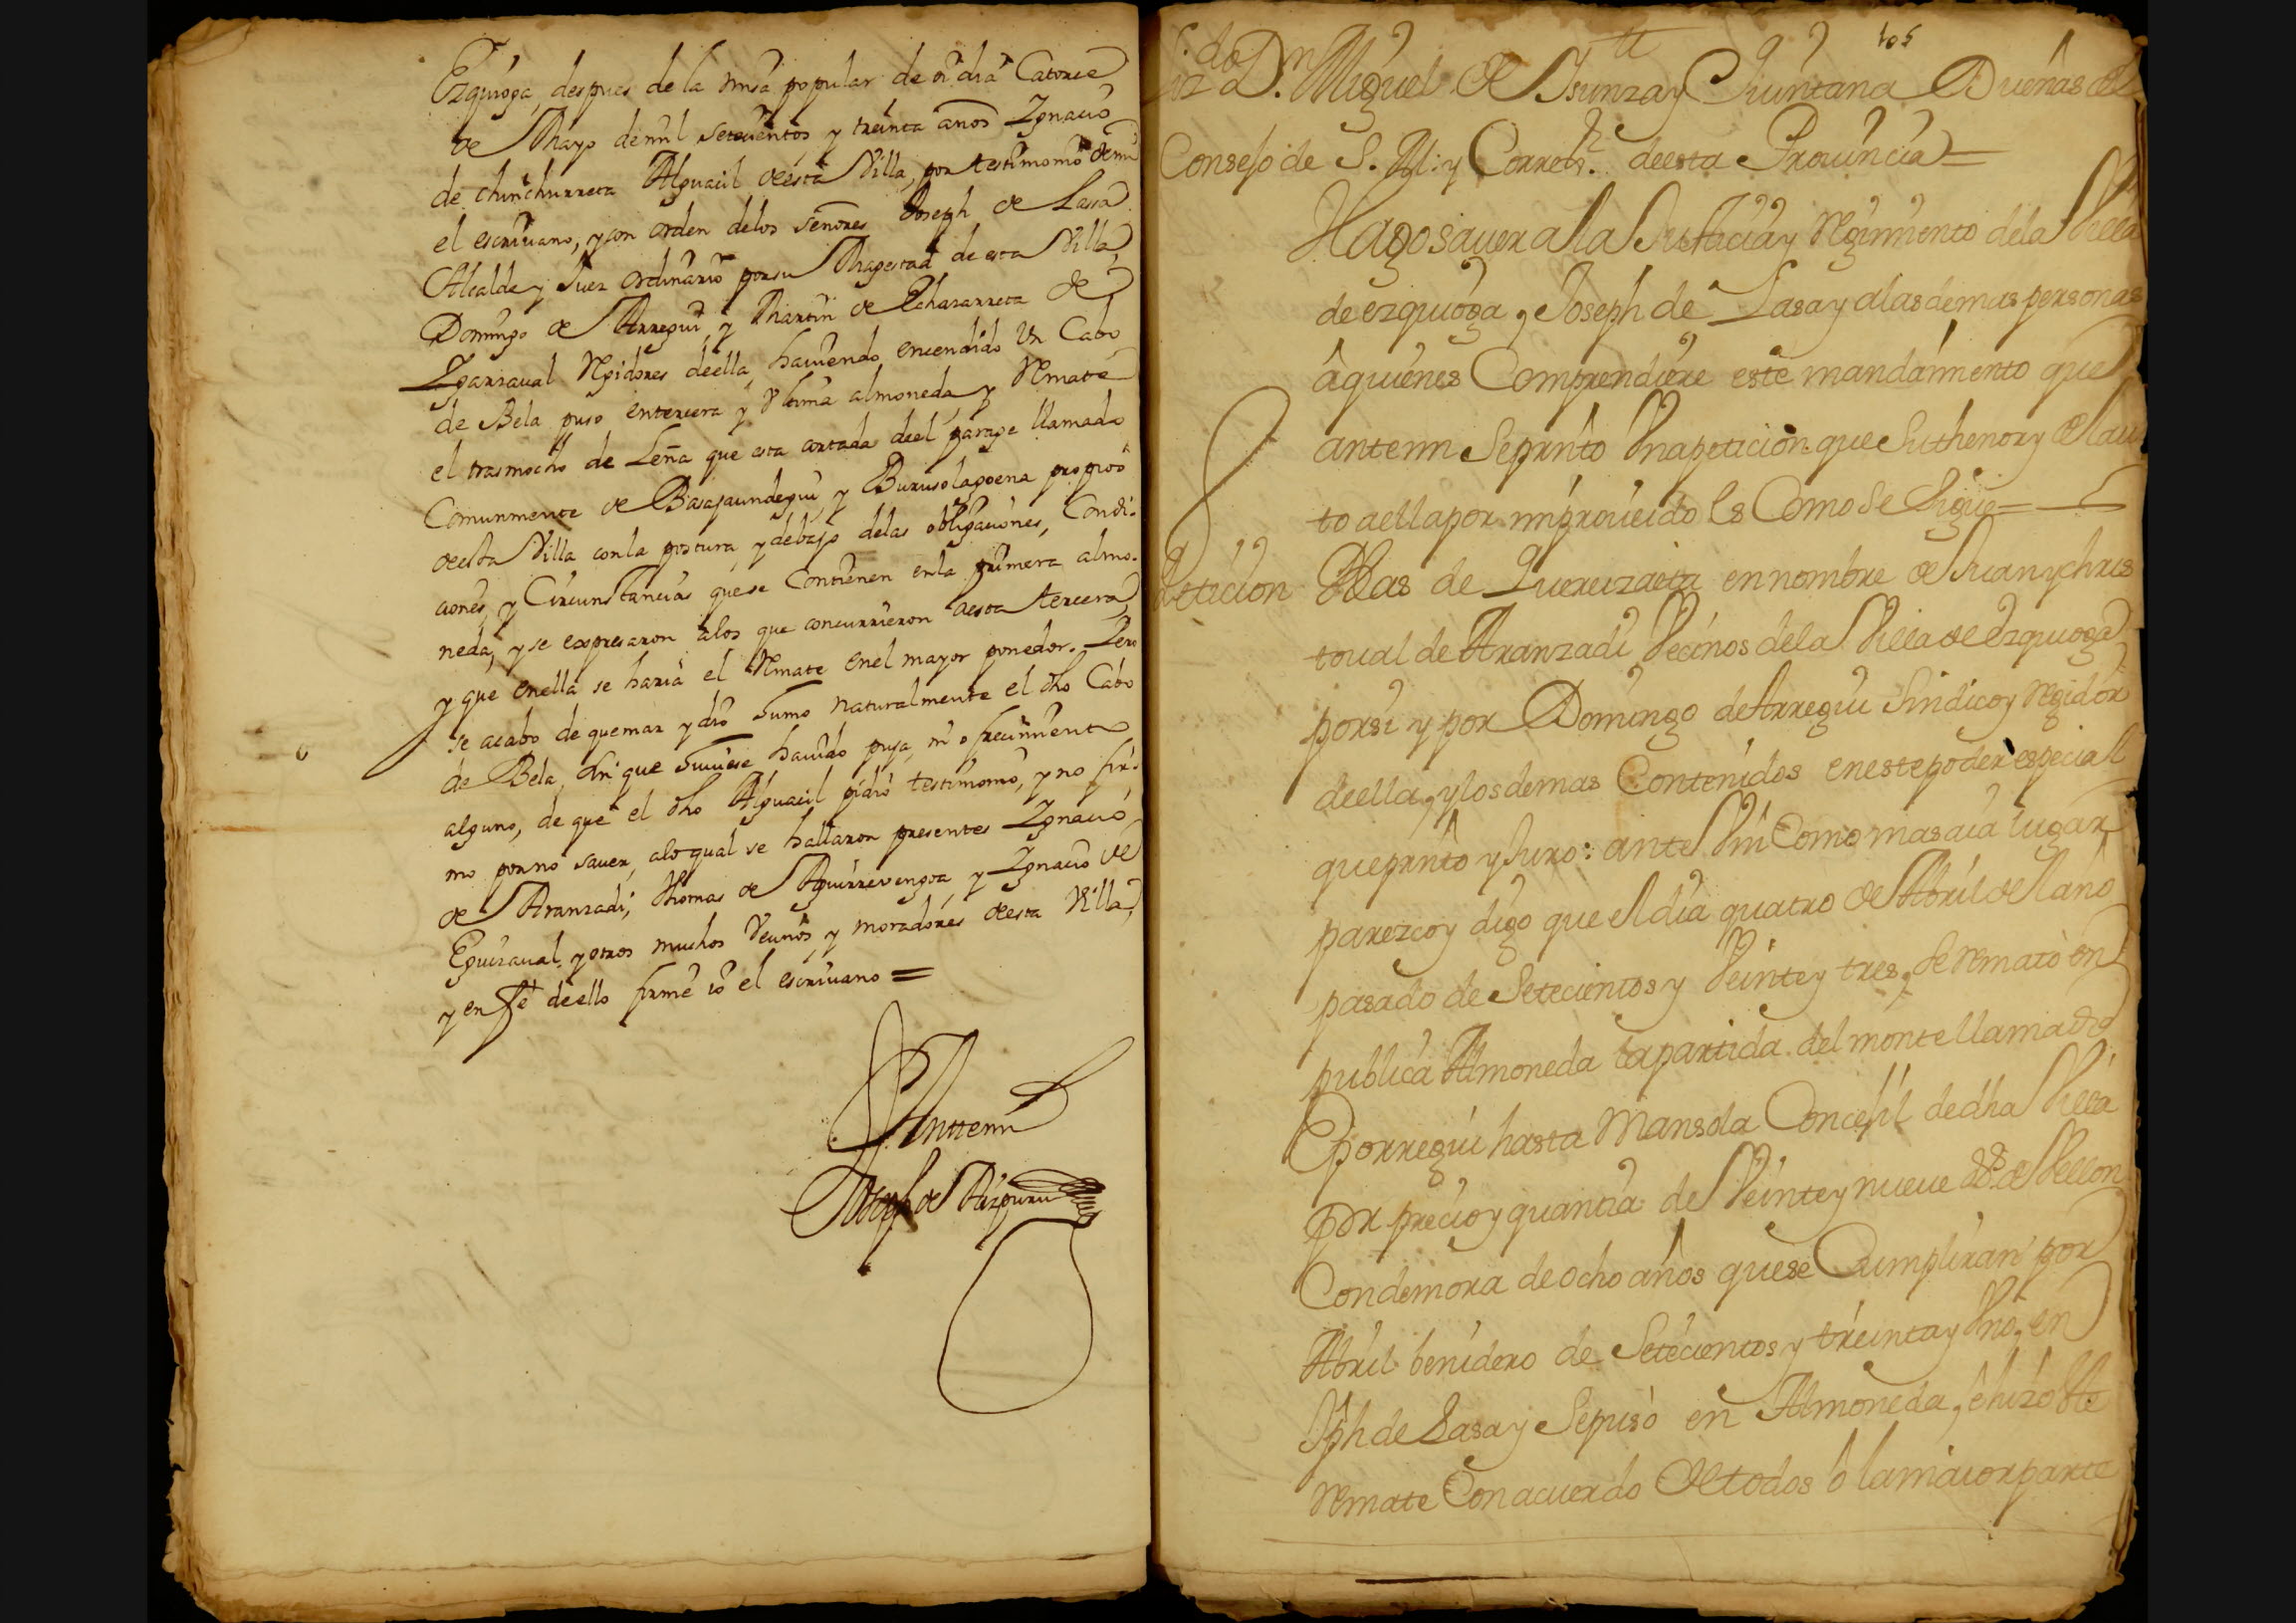 Ezquioga, despues de la missa popular de oi dia Catorce
de Mayo de mil setecientos y treinta años Ygnacio
de chinchurreta Alguacil de esta Villa, por testimonio de mi
el escrivano, y con orden de los señores Joseph de Lassa
Alcalde y Juez ordinario por su Magestad de esta Villa,
Domingo de Arregui, y Martin de Echararreta de
Ygarzaval Rexidores de ella, haviendo encendido Un Cabo
de Bela puso en tercera y Ultima almoneda, y Remate
el trasmocho de Leña que esta cortada de el parage llamado
Comunmente de Basajaundegui, y Burusolagoena propios
de esta Villa con la postura, y debajo de las obligaciones, Condi-
ciones, y Circunstancias que se Contienen en la primera almo-
neda, y se expresaron a los que concurrieron a esta tercera,
y que en ella se haria el Remate en el mayor ponedor. Pero
se acabo de quemar y dio fumo naturalmente el dho Cabo
de Bela, sin que huviese havido puja, ni ofrecimiento
alguno, de que el dho Alguacil pidio testimonio, y no fir-
mo por no saver, a lo qual se hallaron presentes Ygnacio
de Aranzadi, Thomas de Aguirrevengoa, y Ygnacio de
Eguizaval, y otros muchos Vecinos, y moradores de esta Villa,
y en fe de ello firme io el escrivano =
Ante mi
Joseph de Aizpuru
105
D.n Miguel de Isunza y Quintana Dueñas del
Consejo de S. M. y Correg.r de esta Provincia =
Hago saver a la Justicia y Regimiento de la Villa
de ezquioga, Joseph de Lasa y a las demas personas
a quienes Comprendiere este mandamiento que
ante mi se prntô Una peticion que su thenor y el au
to a ella por mi proveido es Como se Sigue =
Peticion Blas de Quereizaeta en nombre de Juan y chris
toual de Aranzadi Vecinos de la Villa de Ezquioga
por si y por Domingo de Arregui Sindico y Regidor
de ella, y los demas Contenidos en este poder especial
que prnto y Juro: ante Vm Como mas aia lugar
parezco y digo que el dia quatro de Abril del año
pasado de Setecientos y Veinte y tres, se remato en
publica Almoneda la partida del monte llamado
Eporregui hasta Mansola Concejil de dha Villa
por precio y quantia de Veinte y nueve ds de Vellon
Con demora de ocho años que se Cumpliran por
Abril benidero de Setecientos y treinta y Uno, en
Jph de Lasa y Se puso en Almoneda, e hizo este
remate Con acuerdo de todos ô la maior parte